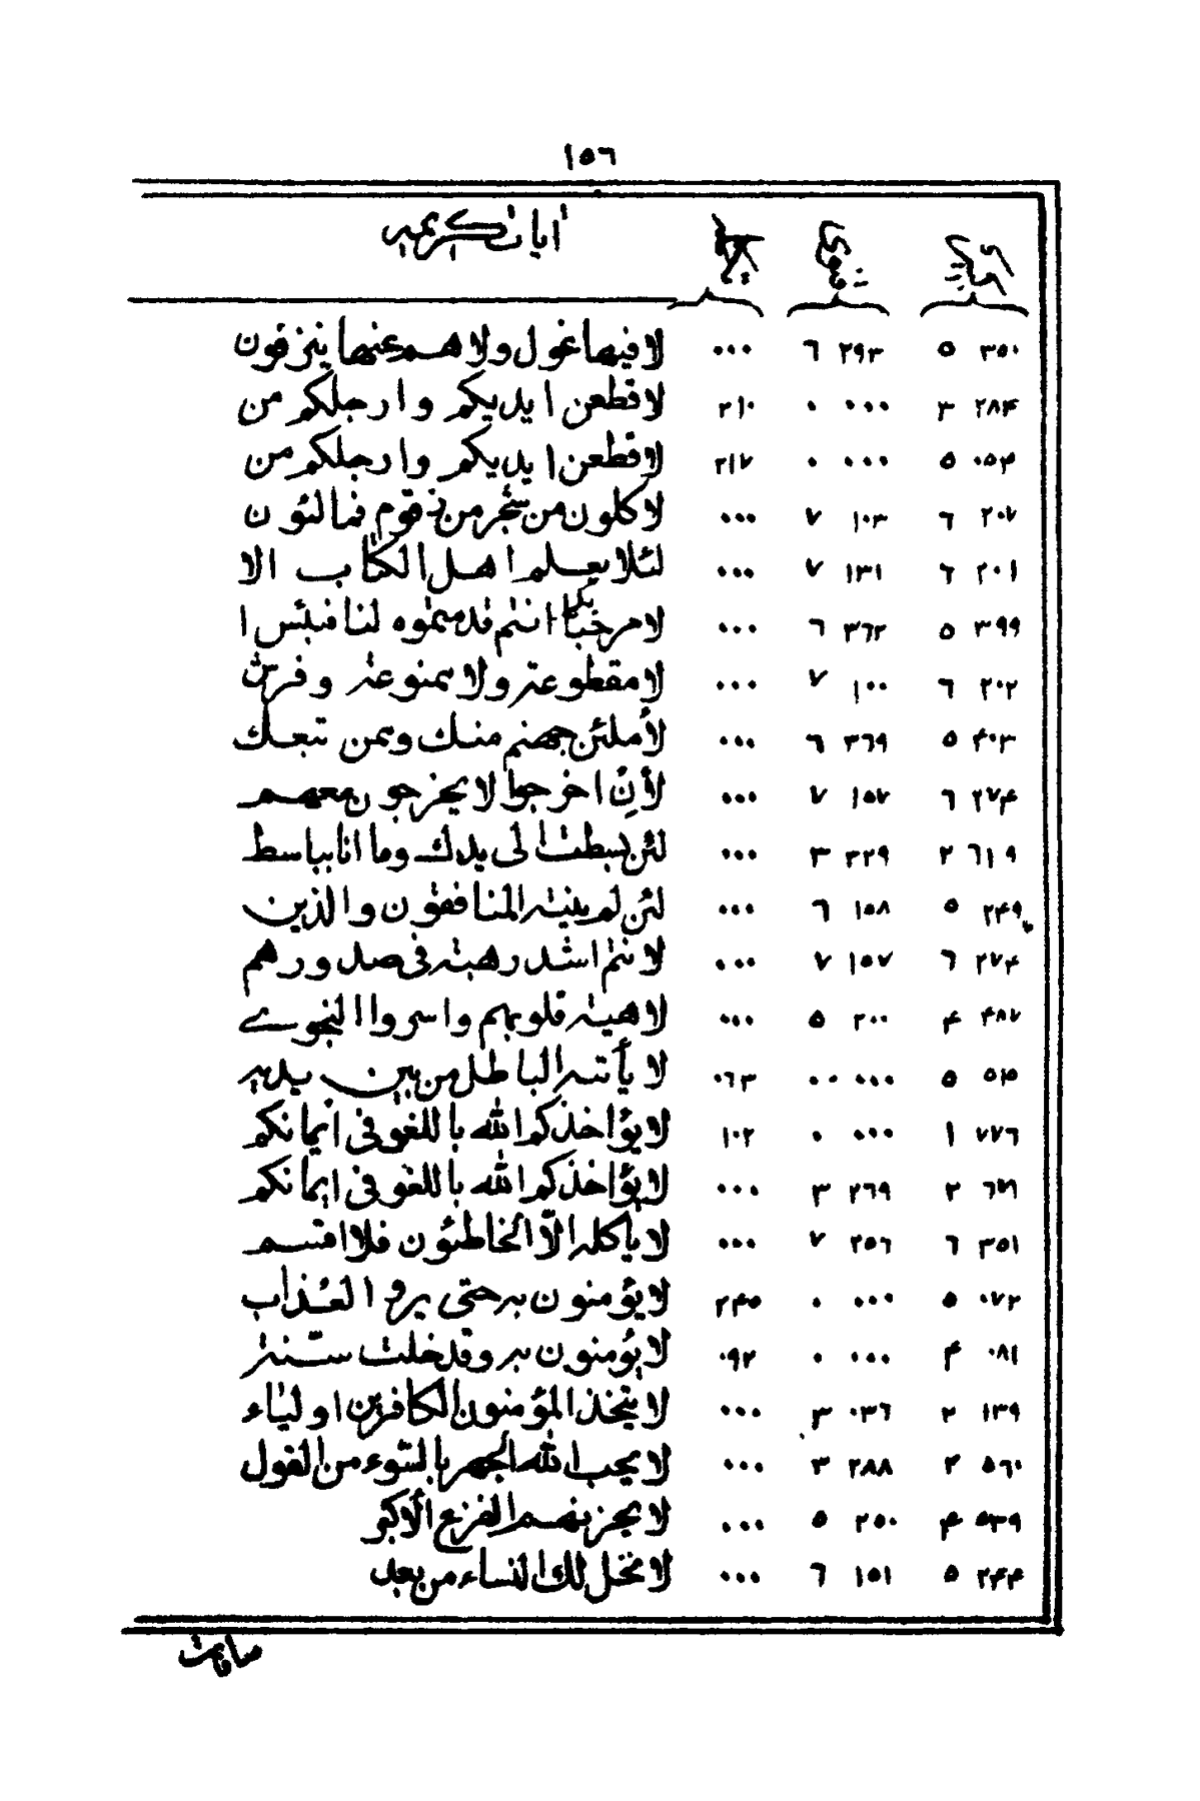 ١٥٦
آيات كريمه
٣٥٠ ٥ ٢٩٣ ٦ ٠٠٠ لا فيها غول ولا هم عنها ينزفون
٢٨۴ ٣ ٠٠٠ ٠ ٢١٠ لا قطعن ايديكم وارجلكم من
٠٥۴ ٥ ٠٠٠ ٠ ٢١٧ لا قطعن ايديكم وارجلكم من
٢٠٧ ٦ ١٠٣ ٧ ٠٠٠ لاكلون من شجر من زقوم فمالئون
٢٠١ ٦ ١٣١ ٧ ٠٠٠ لئلا يعلم اهل الكتاب الا
٣٩٩ ٥ ٣٦٢ ٦ ٠٠٠ لا مرحبًا بكم انتم قدمتموه لنا فبئس ا
٢٠٢ ٦ ١٠٠ ٧ ٠٠٠ لا مقطوعة ولا ممنوعة وفرش
۴٠٣ ٥ ٣٦٩ ٦ ٠٠٠ لأملئن جهنم منك وممن تبعك
٢٧۴ ٦ ١٥٧ ٧ ٠٠٠ لأن اخرجوا لا يخرجون معهم
٦١٩ ٢ ٣٢٩ ٣ ٠٠٠ لئن بسطت الى يدك وما انا بباسط
٢۴٩ ٥ ١٥٨ ٦ ٠٠٠ لئن لم ينته المنافقون والذين
٢٧۴ ٦ ١٥٧ ٧ ٠٠٠ لانتم اشد رهبة فى صدورهم
۴٨٧ ۴ ٢٠٠ ٥ ٠٠٠ لاهية قلوبهم واسروا النجوے
٥۴ ٥ ٠٠٠ ٠٠ ٠٦٣ لا يأتيه الباطل من بين يديه
٧٧٦ ١ ٠٠٠ ٠ ١٠٢ لا يؤاخذكم الله باللغو فى ايمانكم
٢ ٢٦٩ ٣ ٠٠٠ لا يؤاخذكم الله باللغو فى ايمانكم
٣٥١ ٦ ٢٥٦ ٧ ٠٠٠ لا يأكله الّا الخاطئون فلا اقسم
٠٧٢ ٥ ٠٠٠ ٠ ٢۴٥ لا يؤمنون به حتى يروا العذاب
٠٨١ ۴ ٠٠٠ ٠ ٠٩٢ لا يؤمنون به وقد خلت سنة
١٣٩ ٢ ٠٣٦ ٣ ٠٠٠ لا يتخذ المؤمنون الكافرين اولياء
٥٦٠ ٢ ٢٨٨ ٣ ٠٠٠ لا يحب الله الجهر بالسّوء من القول
٥٣٩ ۴ ٢٥٠ ٥ ٠٠٠ لا يحزنهم الفزع الأكبر
٢۴۴ ٥ ١٥١ ٦ ٠٠٠ لا تحل لك النساء من بعد